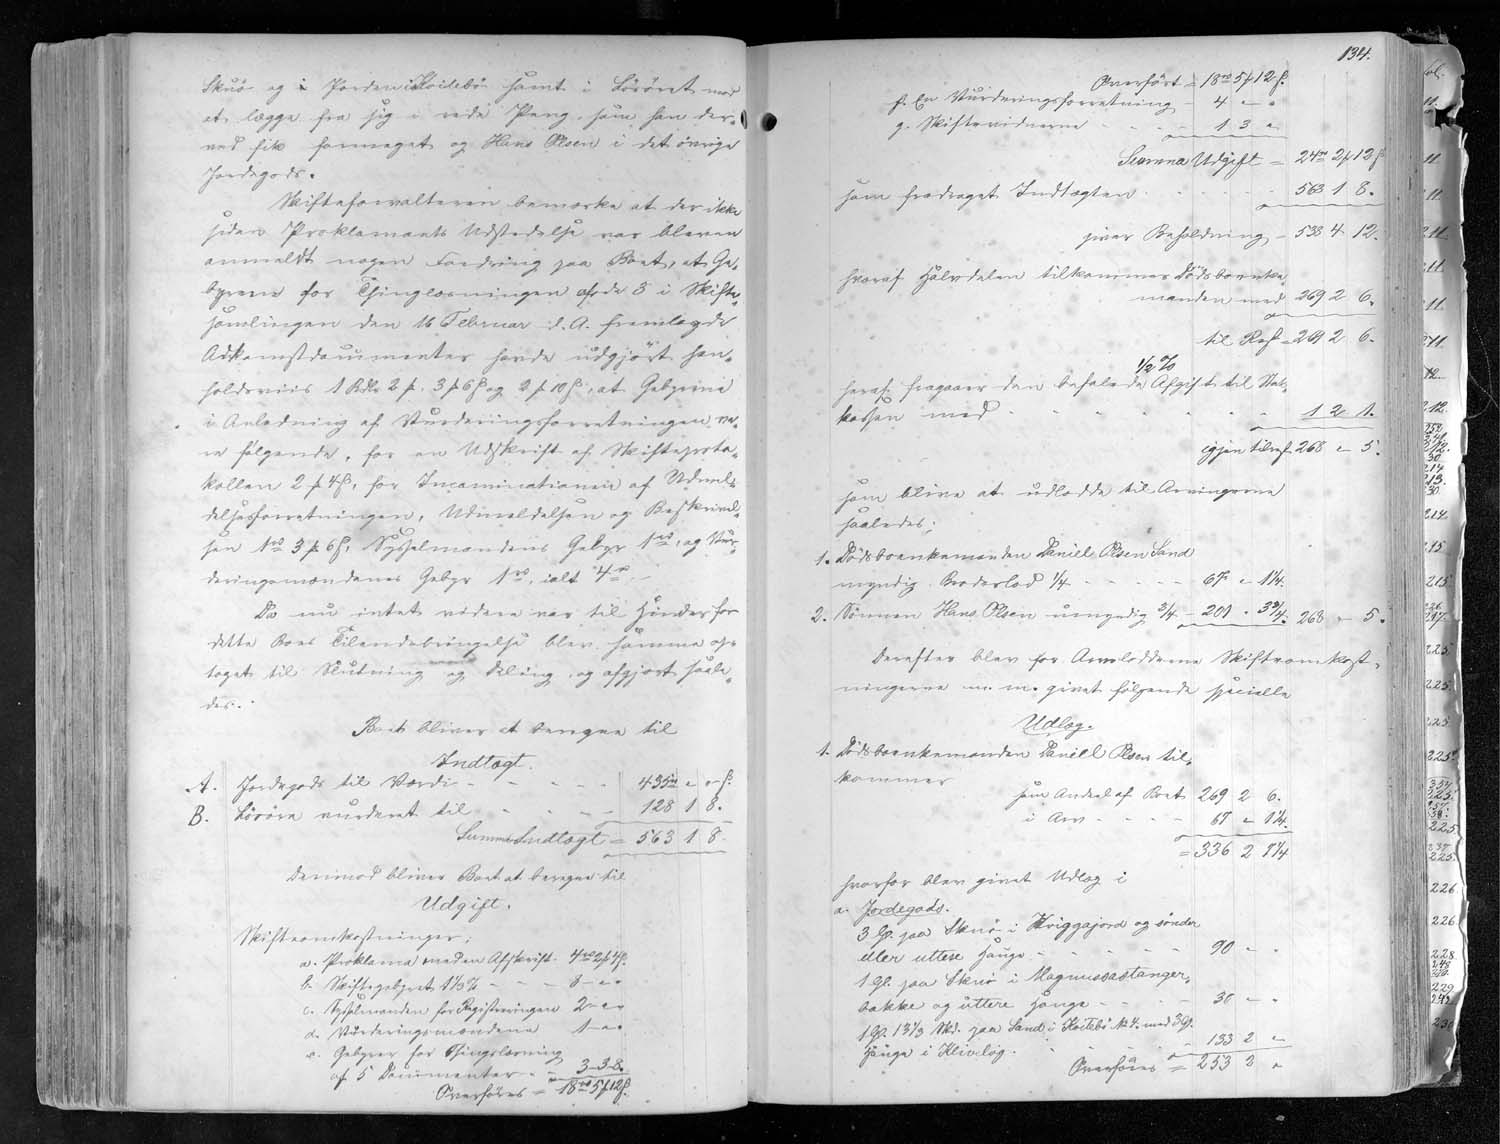 Skuö og i Jorden i Koltebö samt i Lösöret mod
at lægge fra sig i rede Penge som han der-
ved fik formeget og Hans Olsen i det övrige
Jordegods.
Skifteforvalteren bemærkede at der ikke
siden Proklamaets Udstedelse var bleven
anmeldt nogen Fordring paa Boet, at Ge-
byrene for Thinglæsningen af de 3 i Skifte-
samlingen den 16 Februar d. A. fremlagde
Adkomstdocumenter havde udgjört hen-
holdsviis 1 Rdl. 2 ₰. 3 ₰ 6 ß og 2 ₰ 10 ß, at Gebyrene
i Anledning af Vurderingsforretningen va-
re fölgende, for en Udskrift af Skifteproto-
kollen 2 ₰ 4 ß, for Examinationen af Udmel-
delsesforretningen, Udmeldelsen og Beskrivel-
sen 1 rd 3 ₰ 6 ß, Sysselmandens Gebyr 1 rd, og Vur-
deringsmændenes Gebyr 1 rd, ialt 4 rd.
Da nu intet videre var til Hinder for
dette Boes Tilendebringelse blev samme op-
taget til Slutning og Deling og afgjort saale-
des:
Boets bliver at beregne til
Indtægt.
A. Jordegods til Værdi - - - - 435 rd " - ß.
B. Lösöre vurderet til - - - 128 1 8.
Summa Indtægt = 563 1 8.
Derimod bliver Boet at beregne til
Udgift.
Skifteomkostninger;
a. Proklama med en Afskrift 4 rd 2 ₰ 4 ß.
b. Skiftegebyret 1 1/3 % - - - 8 - " "
c. Sysselmanden for Registreringen 2 - " "
d. Vurderingsmændene 1 - " "
e. Gebyrer for Thinglæsning
af 5 Documenter - - 3 - 3 - 8.
Overföres = 18 rd 5 ₰ 12 ß.
134.
Overfört = 18 rd 5 ₰ 12 ß.
f. En Vurderingsforretning - 4 - "
g. Skiftevidnerne - - - - 1 3 "
Summa Udgift = 24 rd 2 ₰ 12 ß
som fradraget Indtægten - - - 563 1 8.
giver Beholdning - 538 4 12.
hvoraf Halvdelen tilkommer Dödsboenke-
manden med 269 2 6.
til Rest = 269 2 6.
heraf fragaaer den befalede 1/2 % Afgift til Stats-
kassen med - - - - - - 1 2 1.
igjen tilrest 268 " 5.
som blive at udlodde til Arvingerne
saaledes;
1. Dödsboenkemanden Daniell Olsen Sand
myndig. Broderlod 1/4 - - - - 67 " 1 1/4.
2. Sönnen Hans Olsen umyndig 3/4 - 201 " 3 3/4. 268 " 5.
Derefter blev for Arvelodderne Skifteomkost-
ningerne m. m. givet fölgende specielle
Udlæg.
1. Dödsboenkemanden Daniell Olsen til-
kommer
som Andeel af Boet 269 2 6.
i Arv - - - - 67 " 1 1/4.
= 336 2 7 1/4
hvorfor blev givet Udlæg i
a. Jordegods.
3 Gl. paa Skuö i Kriggajord og sönder
eller uttere Hauge - - - - - 90 - "
1 Gl. paa Skuö i Magnussastanger,
bakke og uttere Hauge - - - - 30 - "
1 Gl. 13 1/3 Skd. paa Sand i Koltebö № 4. med 3 Gl.
Hauge i Klivelög. - - 133 2 "
Overföres = 253 2 "